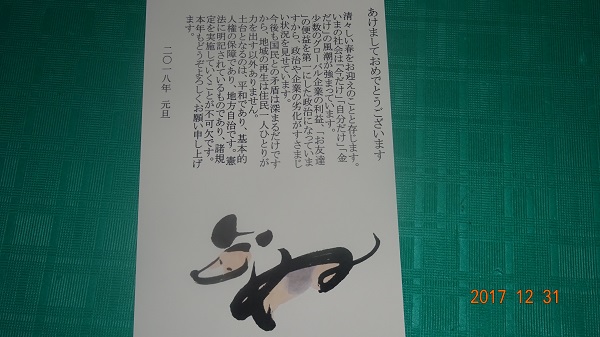 あけましておめでとうございます
清々しい春をお迎えのことと存じます。
いまの社会は「今だけ」「自分だけ」「金
だけ」の風潮が強まっています。
少数のグローバル企業の利益、「お友達
」の便益を第一にした政治になっていま
すから、政治や企業の劣化がすさまじ
い状況を見せています。
今後も国民との矛盾は深まるだけです
から、地域の再生は住民一人ひとりが
力を出す以外ありません。
土台となるのは、平和であり、基本的
人権の保障であり、地方自治です。憲
法に明記されているものであり、諸規
定を実施していくことが不可欠です。
本年もどうぞよろしくお願い申し上げ
ます。
二〇一八年 元旦
2017 12 31